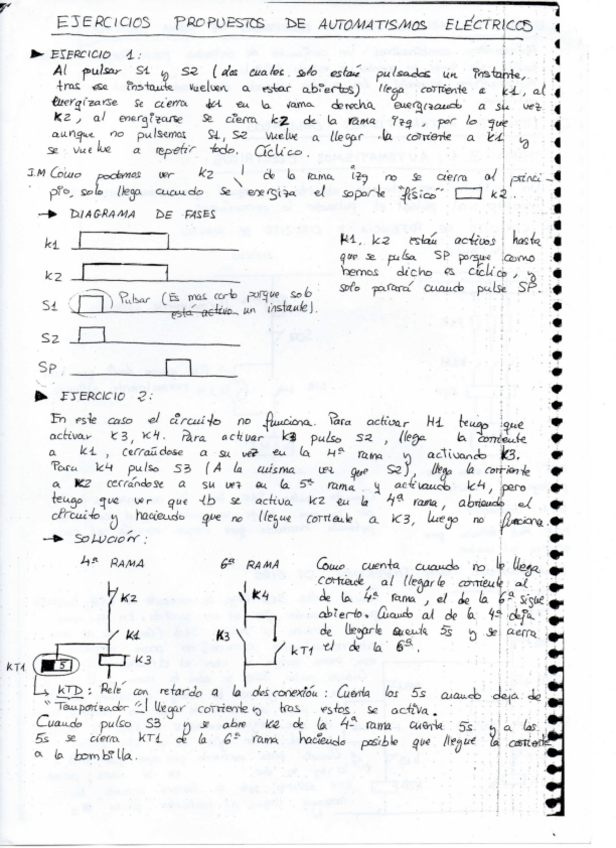 EJERCICIOS PROPUESTOS DE AUTOMATISMOS ELÉCTRICOS
EJERCICIO 1:
Al pulsar S1 y S2 (los cuales solo están pulsados un instante,
tras ese instante vuelven a estar abiertos) llega corriente a k1, al
energizarse se cierra k1 en la rama derecha energizando a su vez
K2, al energizarse se cierra k2 de la rama izq, por lo que
aunque no pulsemos S1, S2 vuelve a llegar la corriente a K1 y
se vuelve a repetir todo. Cíclico.
I.M Como podemos ver K2 de la rama izq no se cierra al princi-
pio, solo llega cuando se energiza el soporte "físico" K2.
→ DIAGRAMA DE FASES
K1
K1, K2 están activos hasta
que se pulsa SP porque como
hemos dicho es cíclico, y
solo parará cuando pulse SP.
K2
S1 Pulsar (Es mas corto porque solo
está activo un instante).
S2
SP
EJERCICIO 2:
En este caso el circuito no funciona. Para activar H1 tengo que
activar K3, K4. Para activar K3 pulso S2, llega la corriente
a K1, cerrándose a su vez en la 4ª rama y activando K3.
Para K4 pulso S3 (A la misma vez que S2), llega la corriente
a K2 cerrándose a su vez en la 5ª rama y activando K4, pero
tengo que ver que tb se activa K2 en la 4ª rama, abriendo el
circuito y haciendo que no llegue corriente a K3, luego no funciona.
→ SOLUCIÓN:
4ª RAMA 6ª RAMA
K2
K1
K3
KT1 5
K4
K3
KT1
Como cuenta cuando no le llega
corriente, al llegarle corriente al
de la 4ª rama, el de la 6ª sigue
abierto. Cuando al de la 4ª deja
de llegarle cuenta 5s y se cierra
el de la 6ª.
KTD: Relé con retardo a la desconexión: Cuenta los 5s cuando deja de
"Temporizador" llegar corriente y tras estos se activa.
Cuando pulso S3 y se abre K2 de la 4ª rama cuenta 5s y a los
5s se cierra KT1 de la 6ª rama haciendo posible que llegue la corriente
a la bombilla.